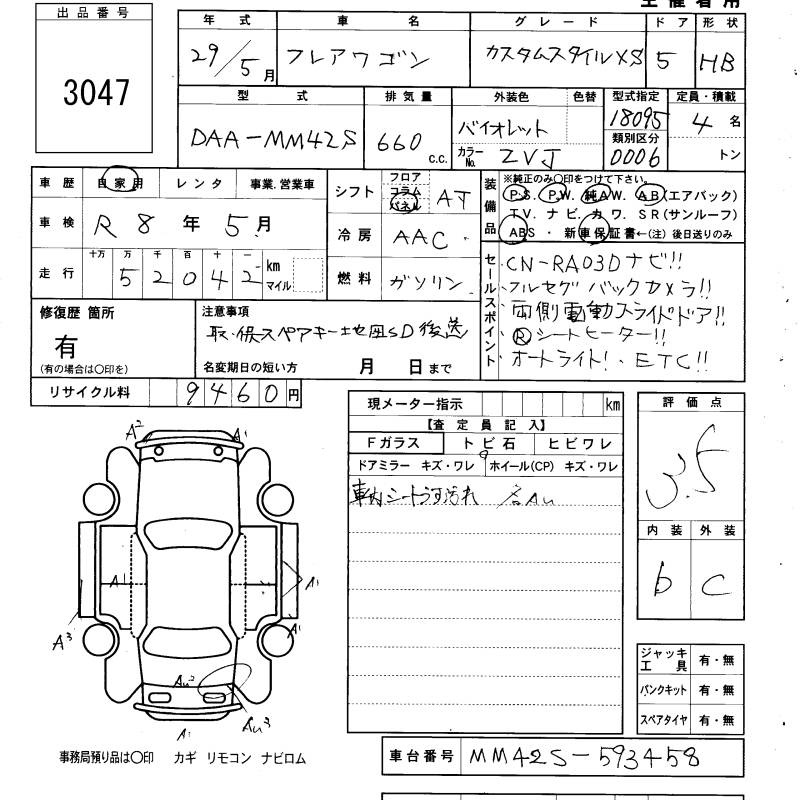 出品番号
3047
年式 車名 グレード ドア 形状
29/5月 フレアワゴン カスタムスタイルXS 5 HB
型式 排気量 外装色 色替 型式指定 定員・積載
DAA-MM42S 660 c.c. バイオレット 18095 4名
カラーNo. ZVJ 類別区分 0006 トン
車歴 自家用 レンタ 事業.営業車
車検 R8年5月
走行 十万 万 千 百 十 一
52042 km マイル
シフト フロア コラム パネル AT
冷房 AAC
燃料 ガソリン
装備品
※純正のみ〇印をつけて下さい。
P.S. P.W. 純AW. AB(エアバック)
TV. ナビ. カワ. SR(サンルーフ)
ABS・新車保証書←(注)後日送りのみ
セールスポイント
CN-RA03Dナビ!!
フルセグ バックカメラ!!
両側電動スライドドア!!
Ⓡシートヒーター!!
オートライト!、ETC!!
修復歴 箇所
有
(有の場合は〇印を)
注意事項
取.保スペアキー地図SD後送
名変期日の短い方 月 日まで
リサイクル料 9460円
現メーター指示 km
【査定員記入】
Fガラス トビ石 ヒビワレ
ドアミラー キズ・ワレ ホイール(CP) キズ・ワレ
車内シートうす汚れ 各AU
評価点
3.5
内装 外装
b C
ジャッキ工具 有・無
パンクキット 有・無
スペアタイヤ 有・無
A2 A1
A1 A1
A3 A1
AU2
AU3
A1
事務局預り品は〇印 カギ リモコン ナビロム
車台番号 MM42S-593458